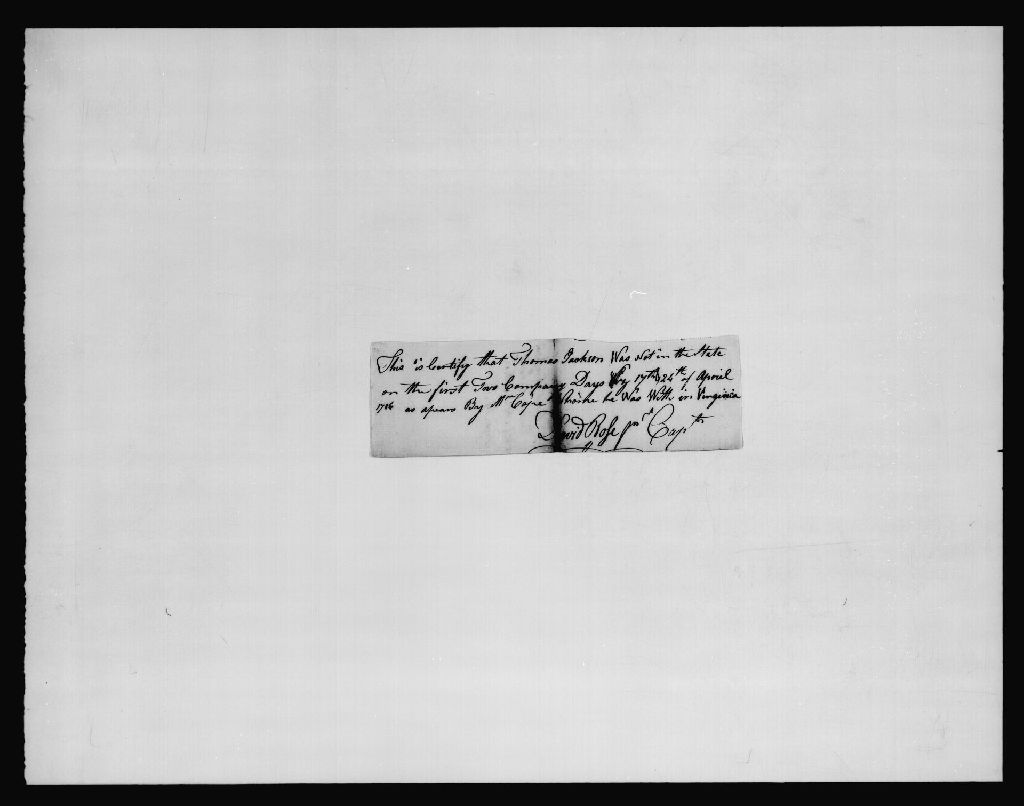 This is Certify that Thomas Jackson Was Not in the State
on the first Two Company Days 17th & 24th of April
1786 as apears By Mr Cope he Was With in Virginia
David Rose Capt